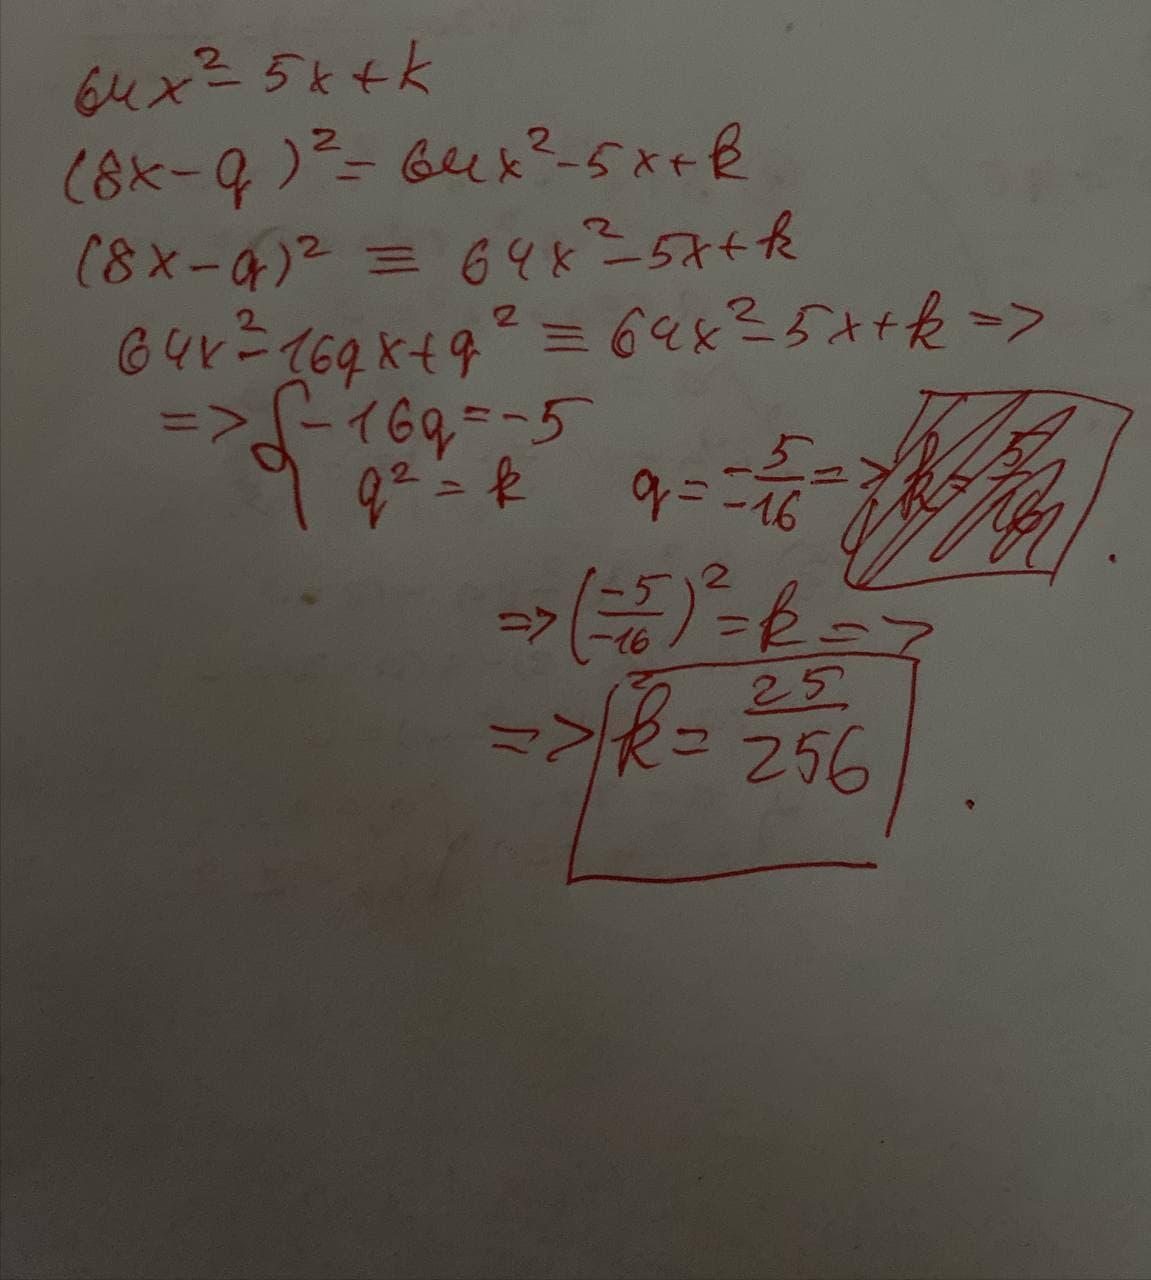 64x² - 5x + k
(8x - q)² = 64x² - 5x + k
(8x - q)² ≡ 64x² - 5x + k
64x² - 16qx + q² ≡ 64x² - 5x + k =>
=> { -16q = -5
q² = k q = -5/-16 => k = 5/16
=> (-5/-16)² = k =>
=> k = 25/256